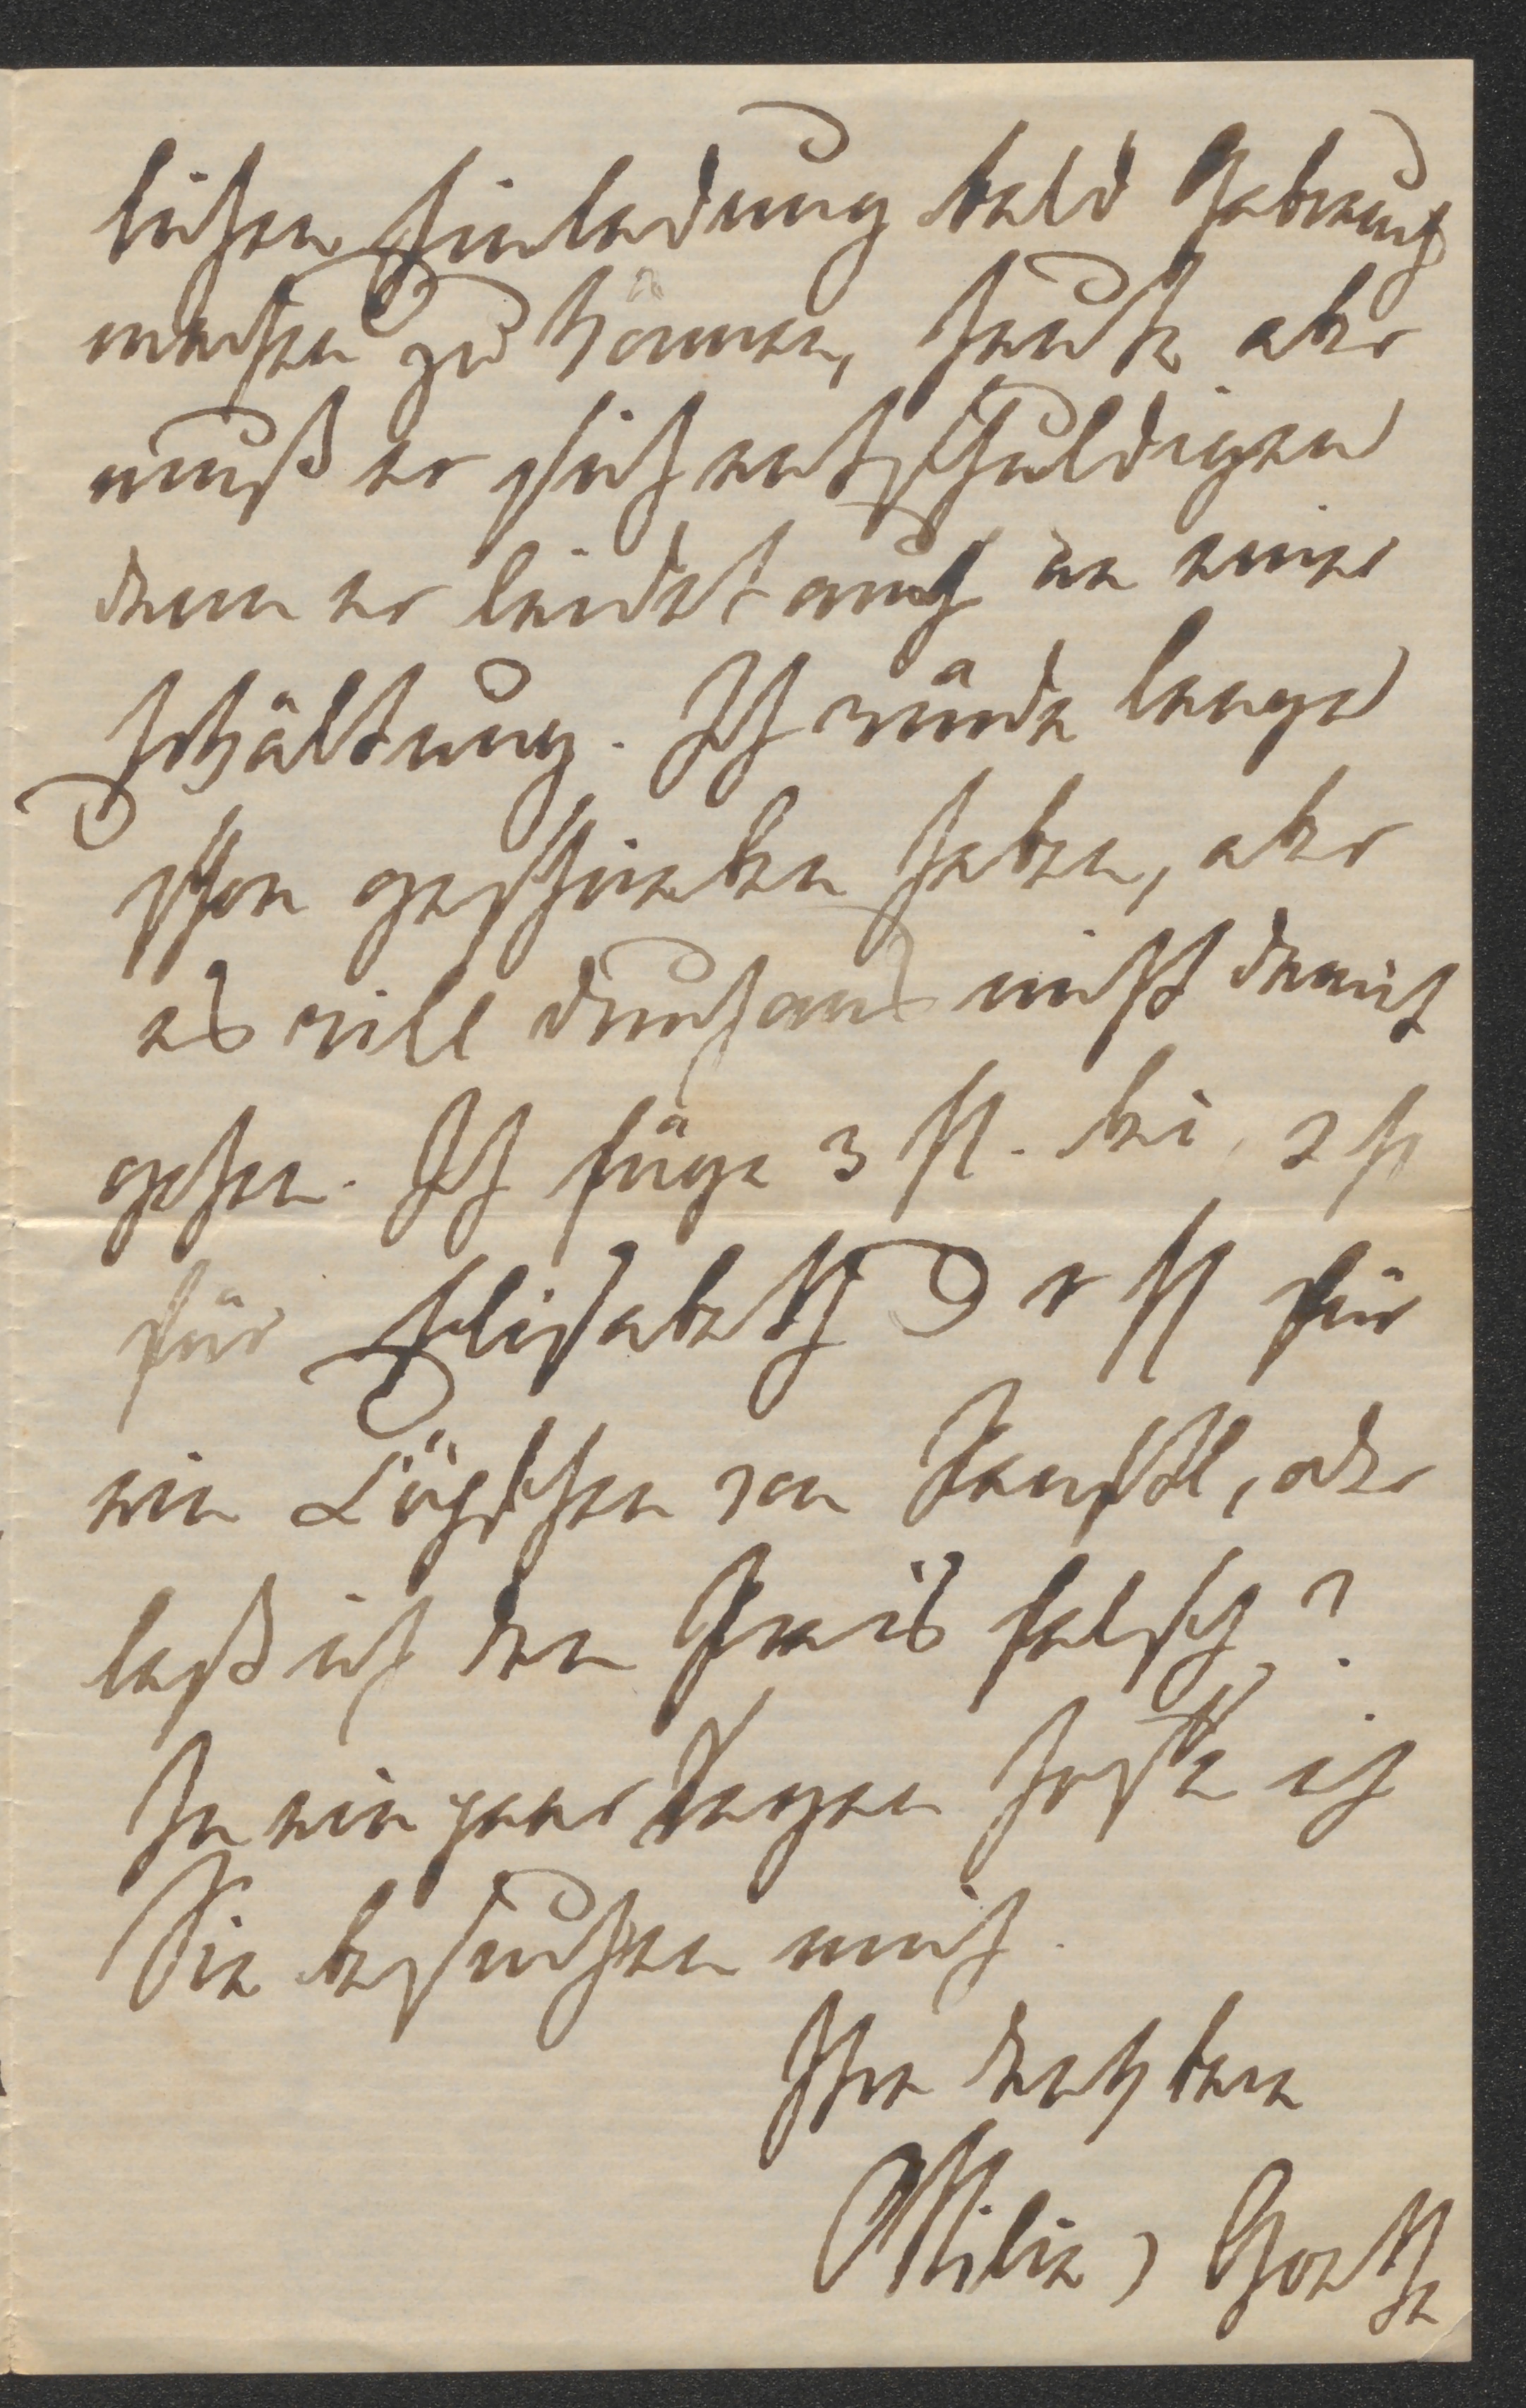 lichen Einladung bald Gebrauch
machen zu können, heute aber
muß er sich entschuldigen
denn er leidet auch an einer
Erkältung. Ich würde lange
schon geschrieben haben, aber
es will durchaus nicht damit
gehen. Ich füge 3 fl. bei, 2 fl
für Elisabeth 1 fl für
ein von, oder
laß ich den Preis falsch?
In ein paar Tagen hoffe ich
Sie besuchen mich.
Ihre dankbare
Ottilie v Goethe